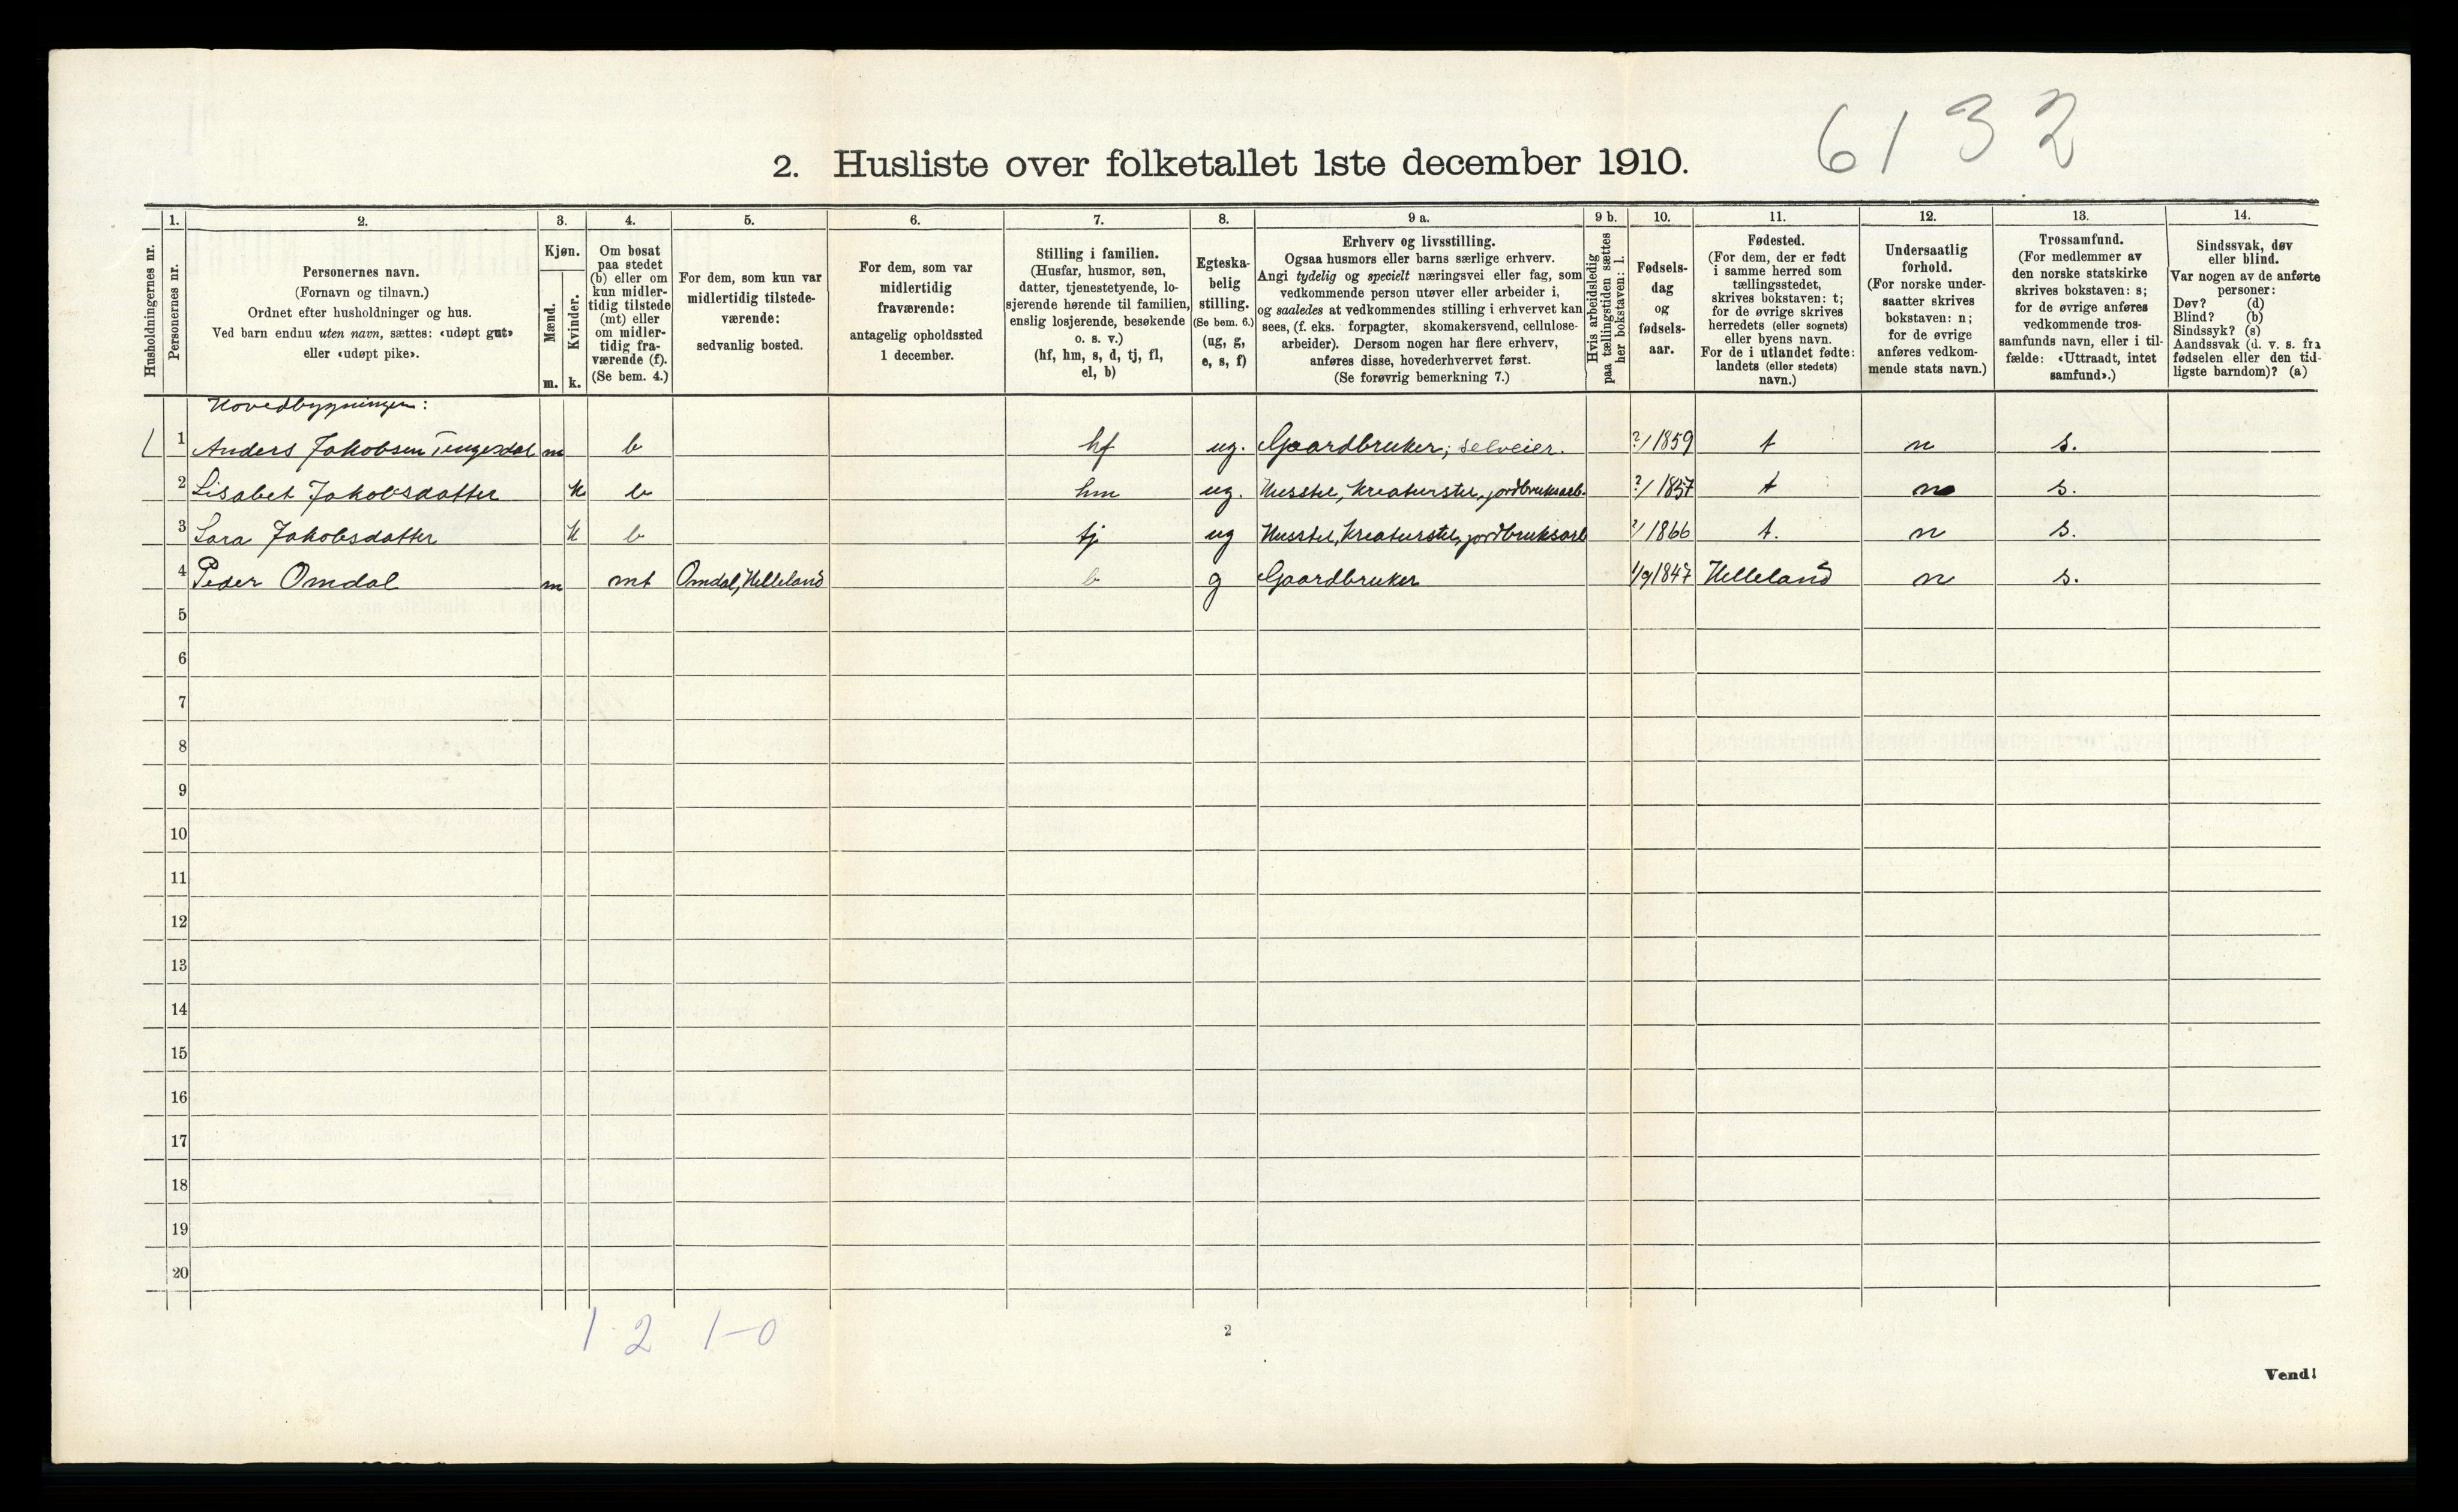 6132
2. Husliste over folketallet 1ste december 1910.
Husholdningernes nr.
1.
Personernes nr.
2.
Personernes navn.
(Fornavn og tilnavn.)
Ordnet efter husholdninger og hus.
Ved barn endnu uten navn, sættes: «udøpt gut»
eller «udøpt pike».
3.
Kjøn.
Mænd.
m.
Kvinder.
k.
4.
Om bosat
paa stedet
(b) eller om
kun midler-
tidig tilstede
(mt) eller
om midler-
tidig fra-
værende (f).
(Se bem. 4.)
5.
For dem, som kun var
midlertidig tilstede-
værende:
sedvanlig bosted.
6.
For dem, som var
midlertidig
fraværende:
antagelig opholdssted
1 december.
7.
Stilling i familien.
(Husfar, husmor, søn,
datter, tjenestetyende, lo-
sjerende hørende til familien,
enslig losjerende, besøkende
o. s. v.)
(hf, hm, s, d, tj, fl,
el, b)
8.
Egteska-
belig
stilling.
(Se bem. 6.)
(ug, g,
e, s, f)
9 a.
Erhverv og livsstilling.
Ogsaa husmors eller barns særlige erhverv.
Angi tydelig og specielt næringsvei eller fag, som
vedkommende person utøver eller arbeider i,
og saaledes at vedkommendes stilling i erhvervet kan
sees, (f. eks. forpagter, skomakersvend, cellulose-
arbeider). Dersom nogen har flere erhverv,
anføres disse, hovederhvervet først.
(Se forøvrig bemerkning 7.)
9 b.
Hvis arbeidsledig
paa tællingstiden sættes
her bokstaven: l.
10.
Fødsels-
dag
og
fødsels-
aar.
11.
Fødested.
(For dem, der er født
i samme herred som
tællingsstedet,
skrives bokstaven: t;
for de øvrige skrives
herredets (eller sognets)
eller byens navn.
For de i utlandet fødte:
landets (eller stedets)
navn.)
12.
Undersaatlig
forhold.
(For norske under-
saatter skrives
bokstaven: n;
for de øvrige
anføres vedkom-
mende stats navn.)
13.
Trossamfund.
(For medlemmer av
den norske statskirke
skrives bokstaven: s;
for de øvrige anføres
vedkommende tros-
samfunds navn, eller i til-
fælde: «Uttraadt, intet
samfund».)
14.
Sindssvak, døv
eller blind.
Var nogen av de anførte
personer:
Døv? (d)
Blind? (b)
Sindssyk? (s)
Aandssvak (d. v. s. fra
fødselen eller den tid-
ligste barndom)? (a)
Hovedbygningen:
1 Anders Jakobsen Tengesdal m b hf ug. Gaardbruker; selveier. ?/1859 t n s.
2 Lisabet Jakobsdatter k b hm ug. Husstel, kreaturstel, jordbruksarb. ?/1857 t n s.
3 Sara Jakobsdatter k b tj ug Husstel, kreaturstel, jordbruksarb ?/1866 t. n s.
4 Peder Omdal m mt Omdal, Helleland b g Gaardbruker 1/9 1847 Helleland n s.
5
6
7
8
9
10
11
12
13
14
15
16
17
18
19
20
1 2 1-0
2
Vend!